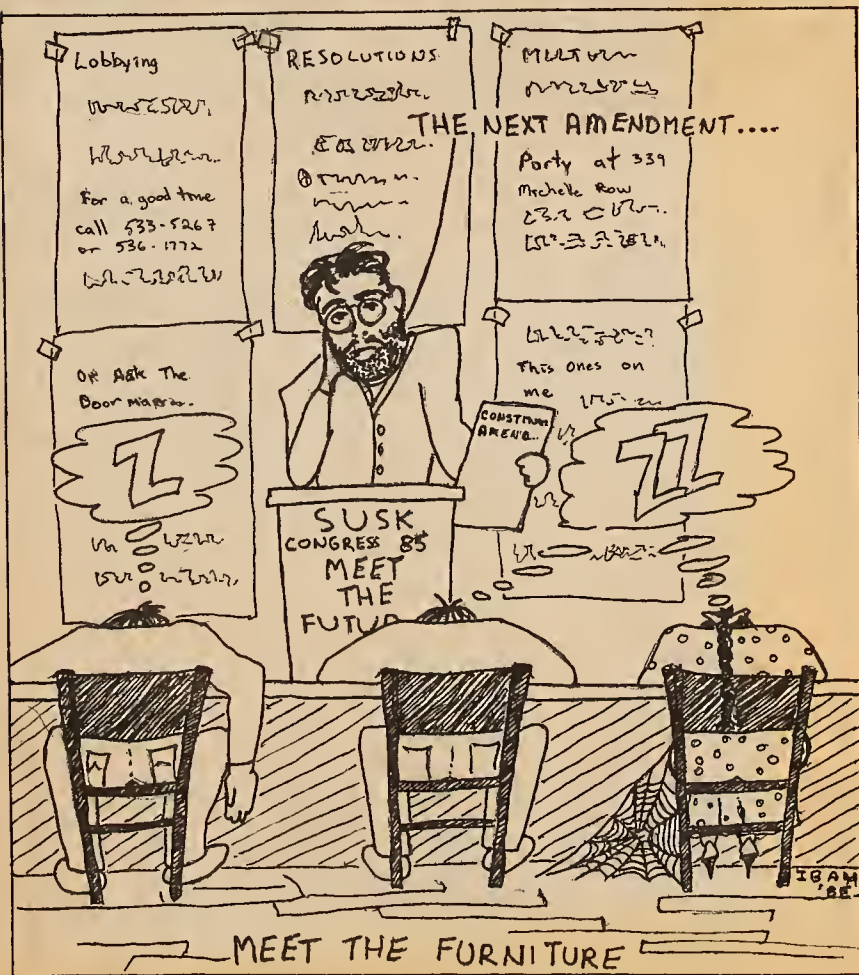 Lobbying
For a good time
call 533-5267
or 536-1772
RESOLUTIONS
THE NEXT AMENDMENT....
Party at 339
Michelle Row
OR Ask The
This ones on
me
SUSK
CONGRESS 85
MEET
THE
FUTU
Z
ZZ
MEET THE FURNITURE